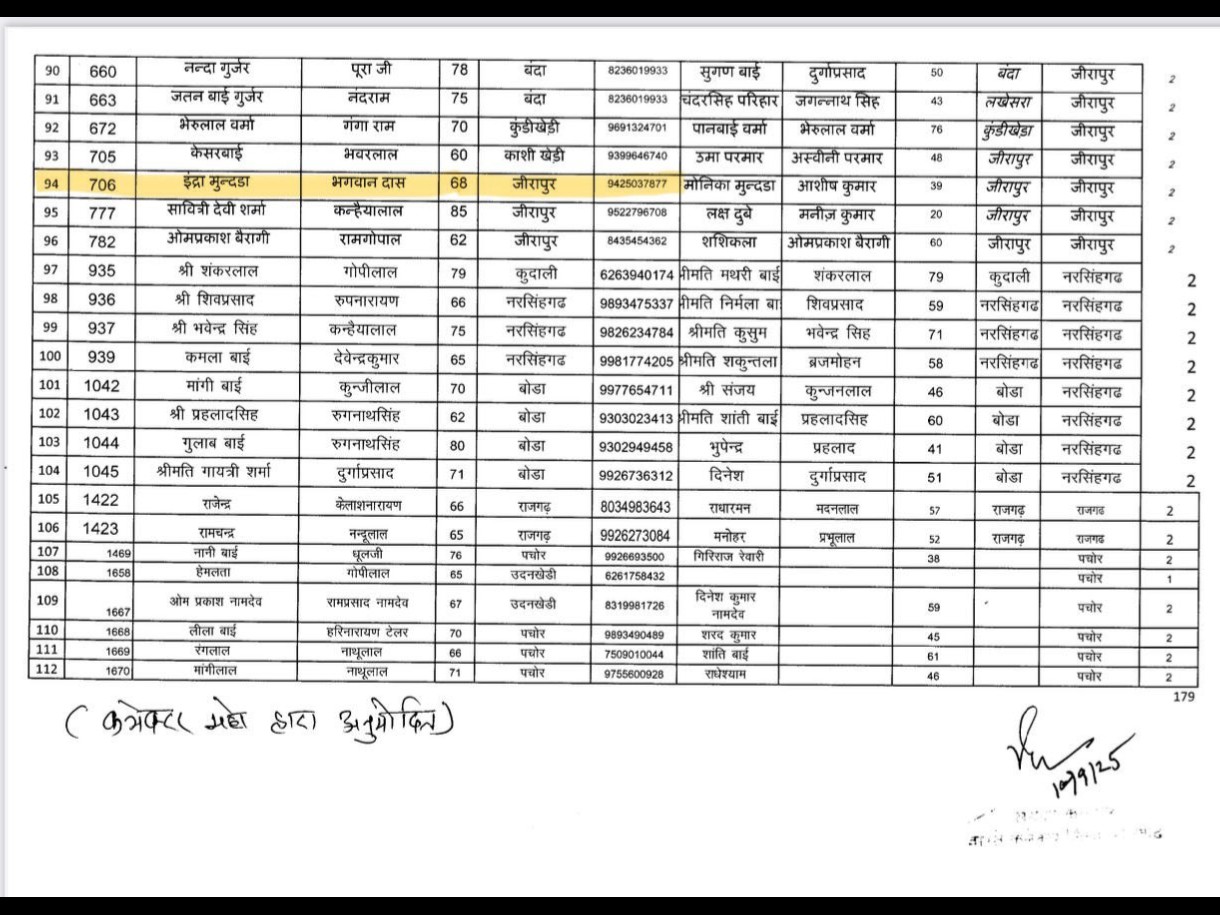 90 660 नन्दा गुर्जर पूरा जी 78 बंदा 8236019933 सुगण बाई दुर्गाप्रसाद 50 बंदा जीरापुर 2
91 663 जतन बाई गुर्जर नंदराम 75 बंदा 8236019933 चंदरसिह परिहार जगन्नाथ सिह 43 लखेसरा जीरापुर 2
92 672 भेरुलाल वर्मा गंगा राम 70 कुंडीखेड़ी 9691324701 पानबाई वर्मा भेरुलाल वर्मा 76 कुंडीखेड़ा जीरापुर 2
93 705 केसरबाई भवरलाल 60 काशी खेड़ी 9399646740 उमा परमार अस्वीनी परमार 48 जीरापुर जीरापुर 2
94 706 इंद्रा मुन्दडा भगवान दास 68 जीरापुर 9425037877 मोनिका मुन्दडा आशीष कुमार 39 जीरापुर जीरापुर 2
95 777 सावित्री देवी शर्मा कन्हैयालाल 85 जीरापुर 9522796708 लक्ष दुबे मनीज़ कुमार 20 जीरापुर जीरापुर 2
96 782 ओमप्रकाश बैरागी रामगोपाल 62 जीरापुर 8435454362 शशिकला ओमप्रकाश बैरागी 60 जीरापुर जीरापुर 2
97 935 श्री शंकरलाल गोपीलाल 79 कुदाली 6263940174 ीमति मथरी बाई शंकरलाल 79 कुदाली नरसिंहगढ 2
98 936 श्री शिवप्रसाद रुपनारायण 66 नरसिंहगढ 9893475337 ीमति निर्मला बा शिवप्रसाद 59 नरसिंहगढ नरसिंहगढ 2
99 937 श्री भवेन्द्र सिंह कन्हैयालाल 75 नरसिंहगढ 9826234784 श्रीमति कुसुम भवेन्द्र सिह 71 नरसिंहगढ नरसिंहगढ 2
100 939 कमला बाई देवेन्द्रकुमार 65 नरसिंहगढ 9981774205 श्रीमति शकुन्तला ब्रजमोहन 58 नरसिंहगढ नरसिंहगढ 2
101 1042 मांगी बाई कुन्जीलाल 70 बोडा 9977654711 श्री संजय कुन्जनलाल 46 बोडा नरसिंहगढ 2
102 1043 श्री प्रहलादसिह रुगनाथसिंह 62 बोडा 9303023413 ीमति शांती बाई प्रहलादसिह 60 बोडा नरसिंहगढ 2
103 1044 गुलाब बाई रुगनाथसिंह 80 बोडा 9302949458 भुपेन्द्र प्रहलाद 41 बोडा नरसिंहगढ 2
104 1045 श्रीमति गायत्री शर्मा दुर्गाप्रसाद 71 बोडा 9926736312 दिनेश दुर्गाप्रसाद 51 बोडा नरसिंहगढ 2
105 1422 राजेन्द्र केलाशनारायण 66 राजगढ़ 8034983643 राधारमन मदनलाल 57 राजगढ़ राजगढ 2
106 1423 रामचन्द्र नन्दूलाल 65 राजगढ़ 9926273084 मनोहर प्रभूलाल 52 राजगढ़ राजगढ 2
107 1469 नानी बाई धूलजी 76 पचोर 9926693500 गिरिराज रेवारी 38 पचोर 2
108 1658 हेमलता गोपीलाल 65 उदनखेडी 6261758432 पचोर 1
109 1667 ओम प्रकाश नामदेव रामप्रसाद नामदेव 67 उदनखेडी 8319981726 दिनेश कुमार नामदेव 59 पचोर 2
110 1668 लीला बाई हरिनारायण टेलर 70 पचोर 9893490489 शरद कुमार 45 पचोर 2
111 1669 रंगलाल नाथूलाल 66 पचोर 7509010044 शांति बाई 61 पचोर 2
112 1670 मांगीलाल नाथूलाल 71 पचोर 9755600928 राधेश्याम 46 पचोर 2
179
( कलेक्टर महो द्वारा अनुमोदित )
10/9/25